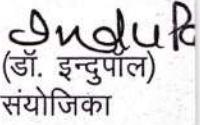 InduPa
(डॉ. इन्दुपॉल)
संयोजिका